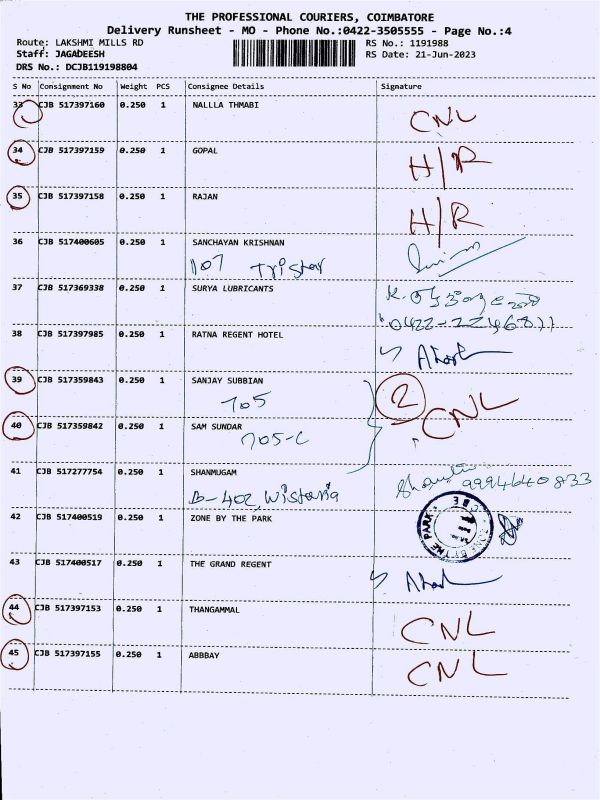 THE PROFESSIONAL COURIERS, COIMBATORE
Delivery Runsheet - MO - Phone No.:0422-3505555 - Page No.:4
Route: LAKSHMI MILLS RD RS No.: 1191988
Staff: JAGADEESH RS Date: 21-Jun-2023
DRS No.: DCJB119198804
S No Consignment No Weight PCS Consignee Details Signature
33 CJB 517397160 0.250 1 NALLLA THMABI CNL
34 CJB 517397159 0.250 1 GOPAL H/R
35 CJB 517397158 0.250 1 RAJAN H/R
36 CJB 517400605 0.250 1 SANCHAYAN KRISHNAN
107 Tristar
37 CJB 517369338 0.250 1 SURYA LUBRICANTS
38 CJB 517397985 0.250 1 RATNA REGENT HOTEL
39 CJB 517359843 0.250 1 SANJAY SUBBIAN 2 CNL
705
40 CJB 517359842 0.250 1 SAM SUNDAR
705-C
41 CJB 517277754 0.250 1 SHANMUGAM 9994640833
B-402, Wistaria
42 CJB 517400519 0.250 1 ZONE BY THE PARK
43 CJB 517400517 0.250 1 THE GRAND REGENT
44 CJB 517397153 0.250 1 THANGAMMAL CNL
45 CJB 517397155 0.250 1 ABBBAY CNL